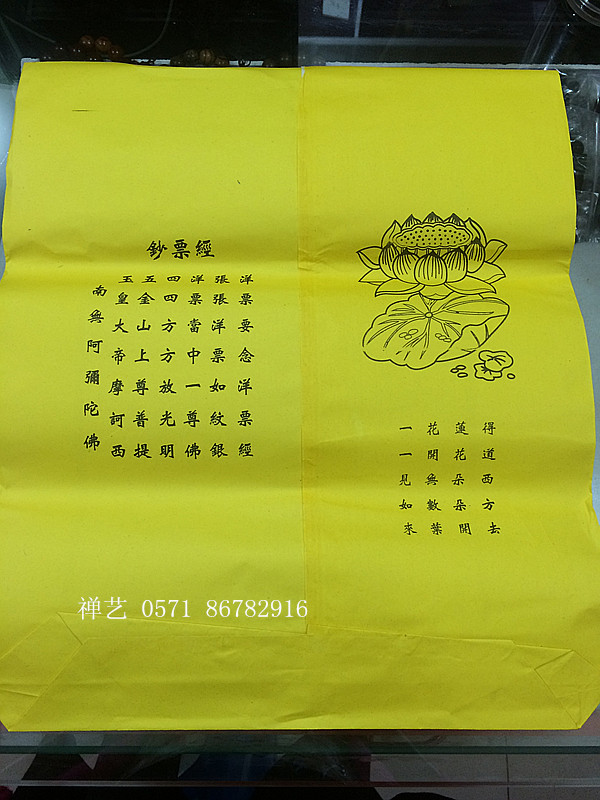 鈔票經
洋票要念洋票經
張張洋票如紋銀
洋票當中一尊佛
四四方方放光明
五金山上尊普提
玉皇大帝摩訶西
南無阿彌陀佛
得道西方去
蓮花朵朵開
花開無數葉
一一見如來
禅艺 0571 86782916